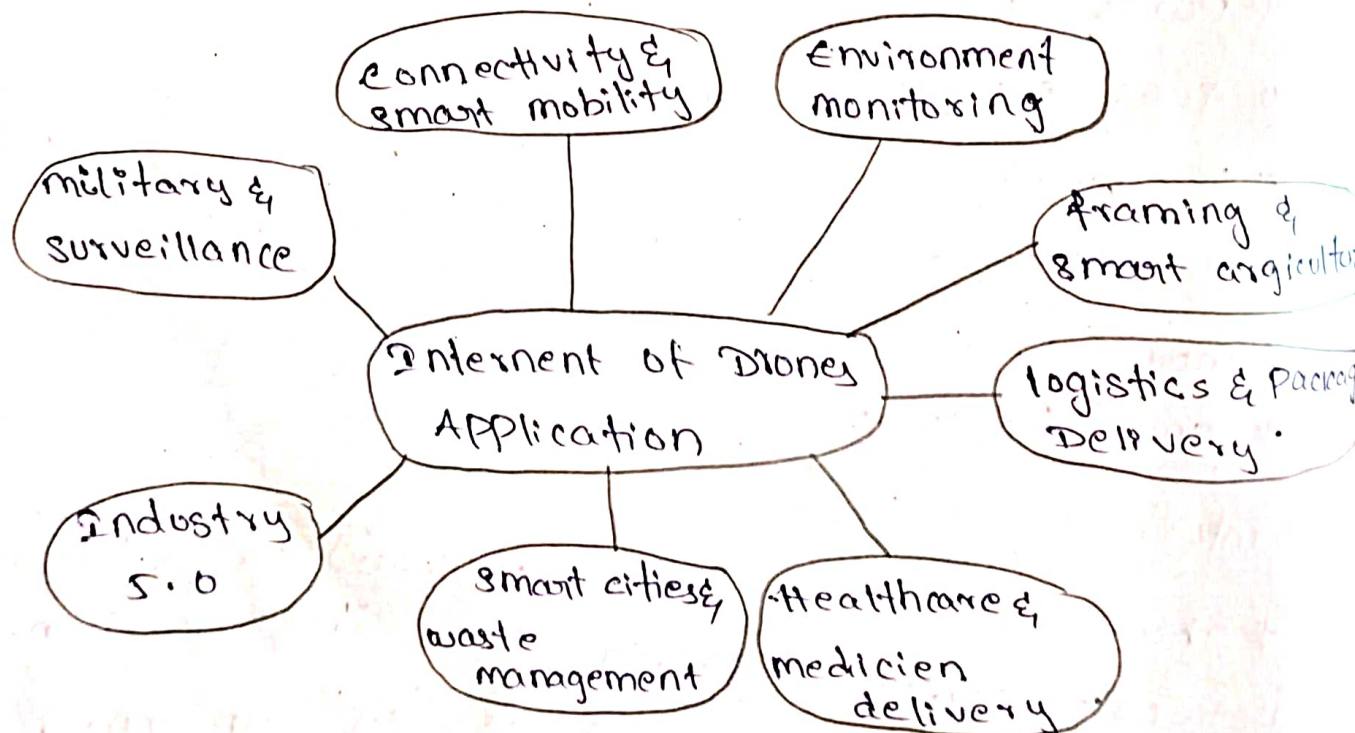 connectivity &
smart mobility
Environment
monitoring
military &
surveillance
framing &
smart argicultur
Internent of Drones
Application
logistics & Packag
Delivery.
Industry
5.0
smart cities &
waste
management
Healthcare &
medicien
delivery